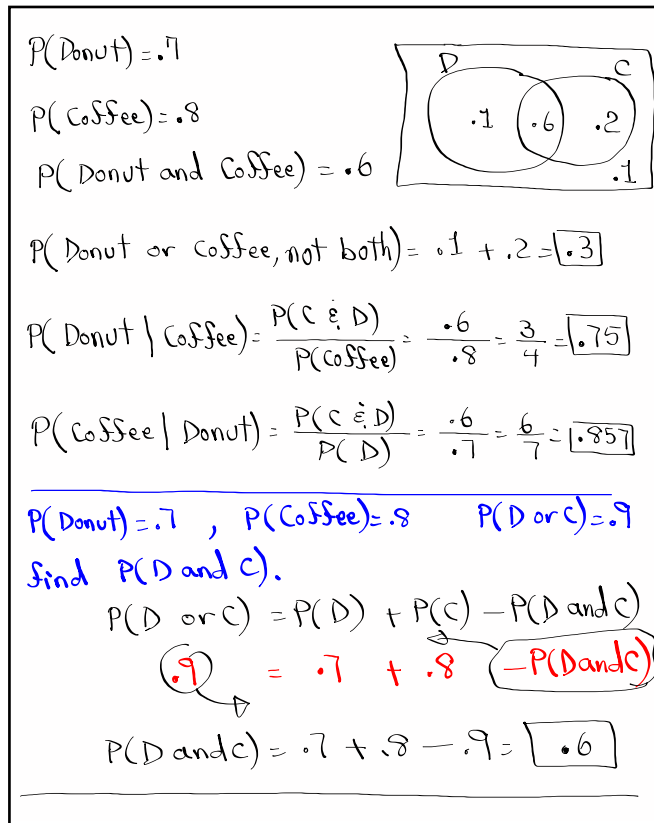 P(Donut) = .7
P(Coffee) = .8
P(Donut and Coffee) = .6
D C
.1 .6 .2
.1
P(Donut or Coffee, not both) = .1 + .2 = .3
P(Donut | Coffee) = P(C & D) / P(Coffee) = .6 / .8 = 3 / 4 = .75
P(Coffee | Donut) = P(C & D) / P(D) = .6 / .7 = 6 / 7 = .857
P(Donut) = .7 , P(Coffee) = .8 P(D or C) = .9
find P(D and C).
P(D or C) = P(D) + P(C) - P(D and C)
.9 = .7 + .8 - P(D and C)
P(D and C) = .7 + .8 - .9 = .6